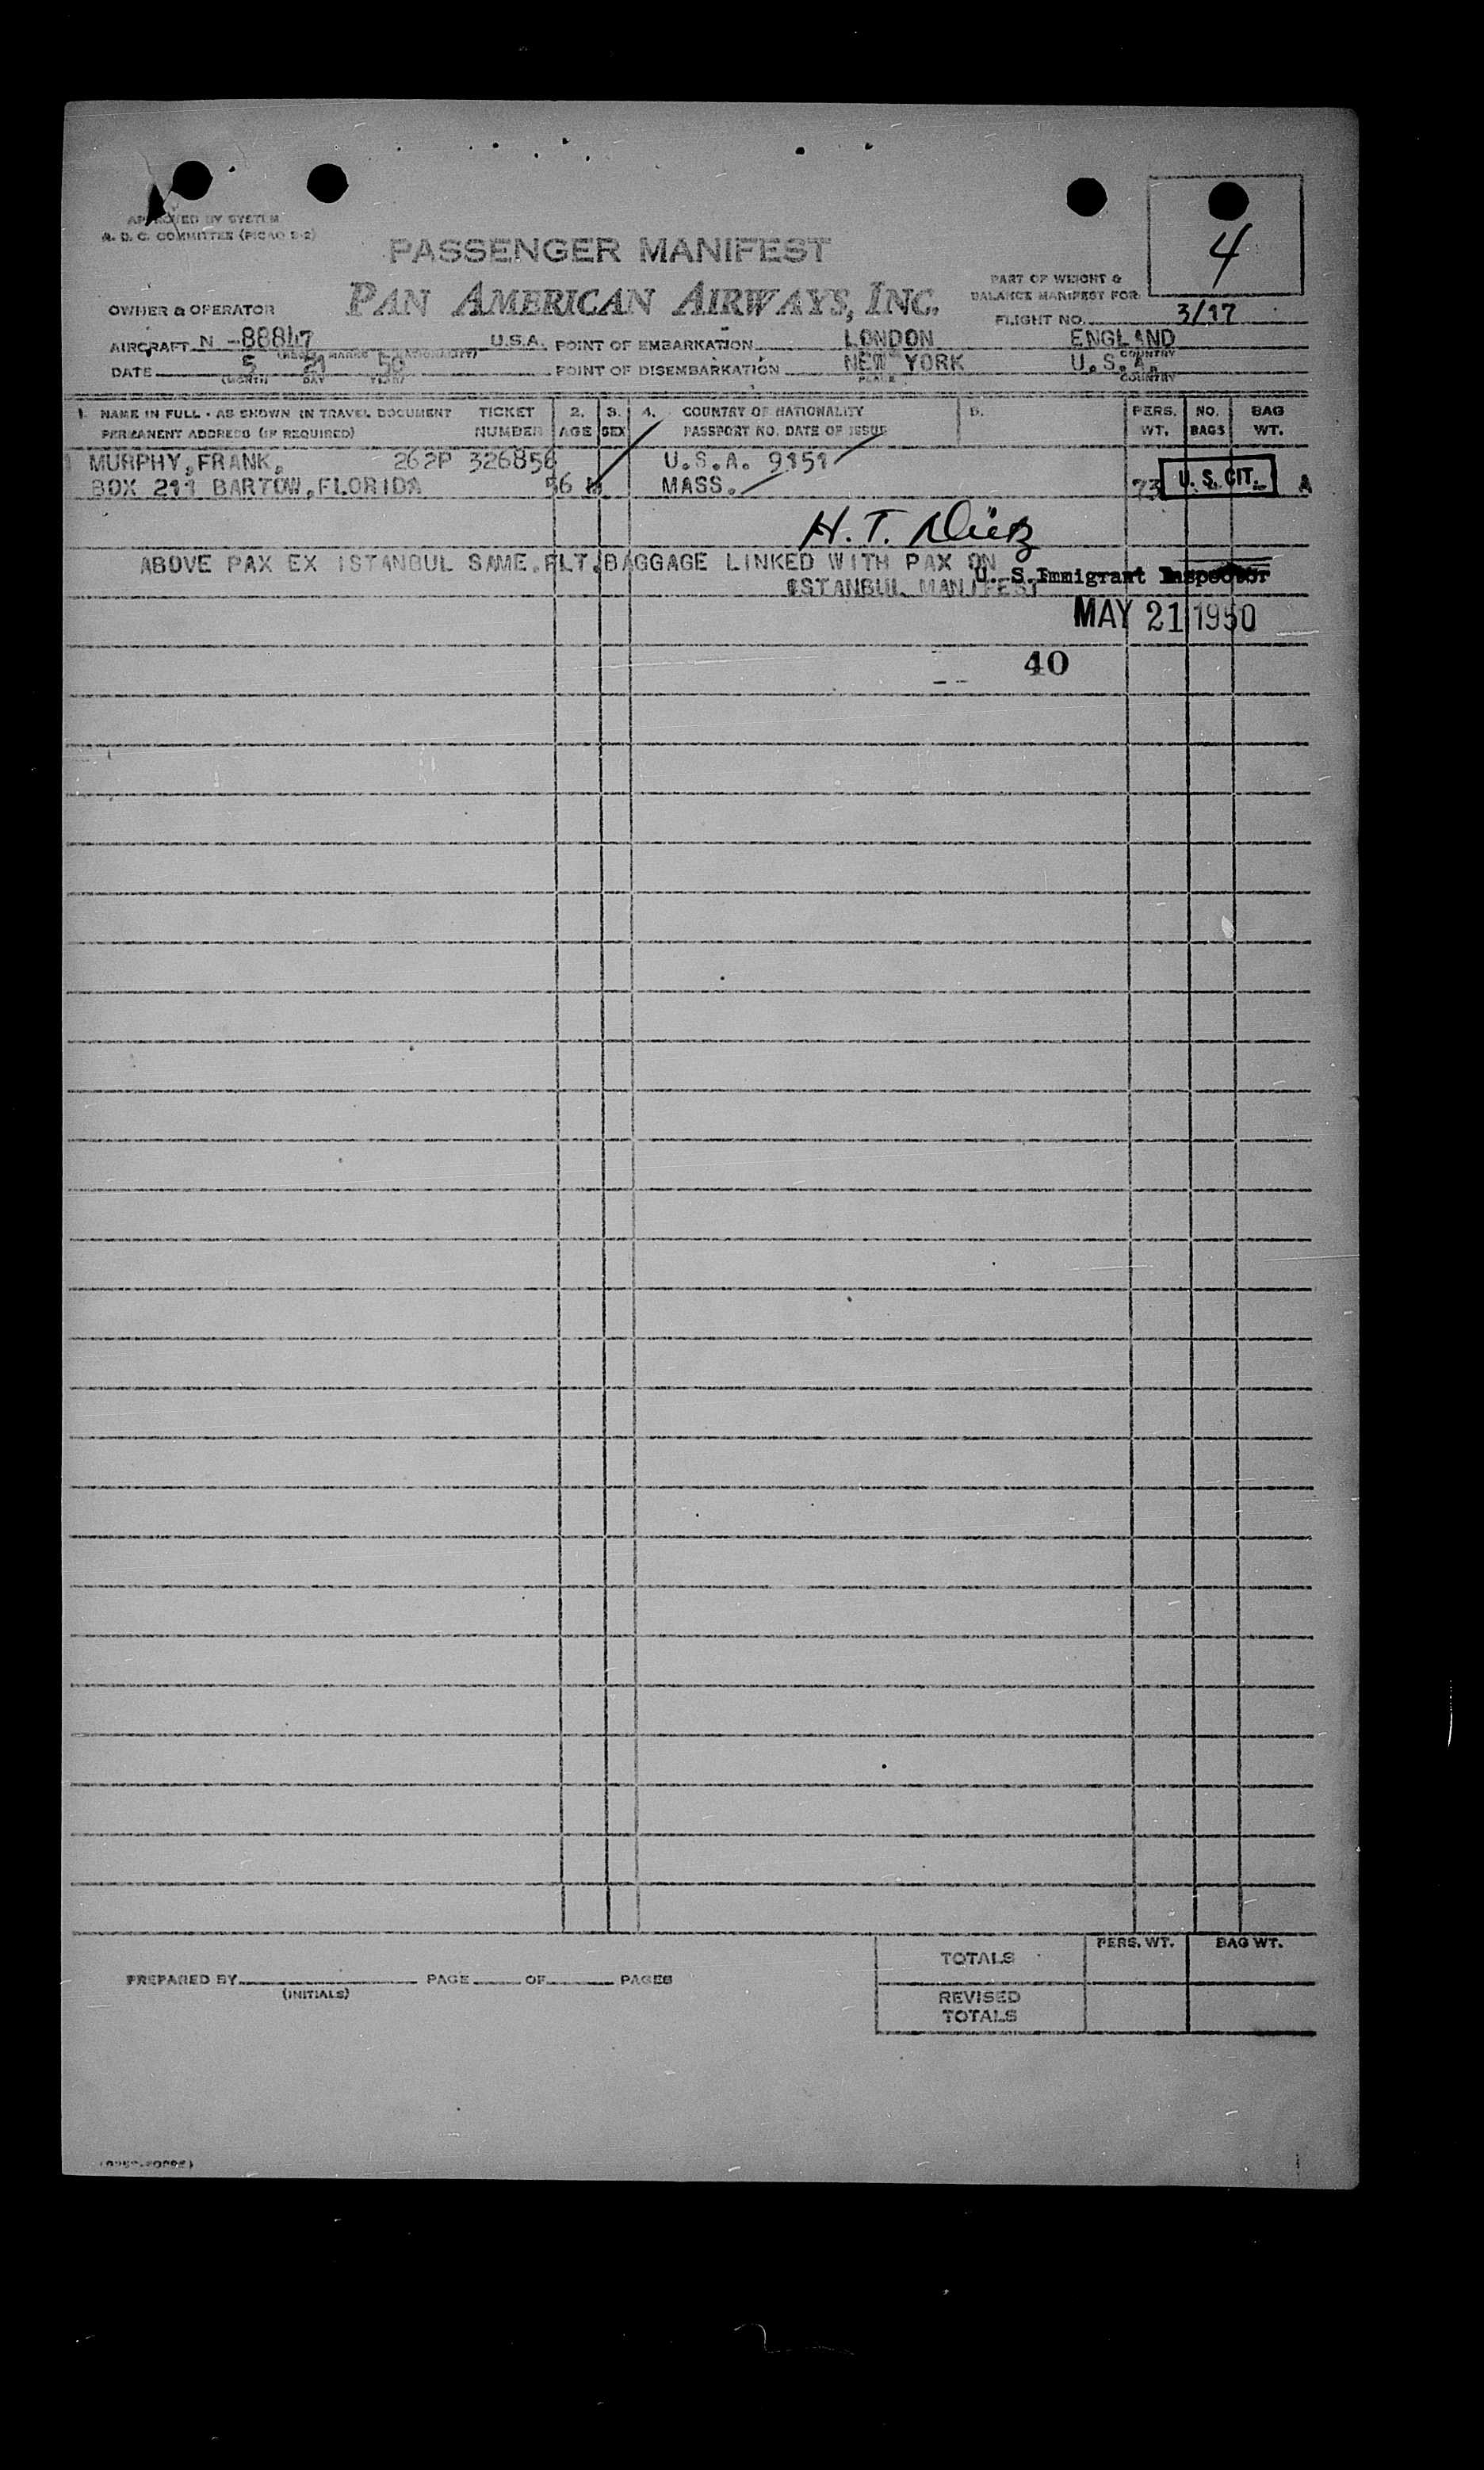 4
APPROVED BY SYSTEM
A. D. C. COMMITTEE (PICAO 2-2)
PASSENGER MANIFEST
PART OF WEIGHT &
BALANCE MANIFEST FOR
OWNER & OPERATOR PAN AMERICAN AIRWAYS, INC. FLIGHT NO. 3/17
AIRCRAFT N -88847 U.S.A. POINT OF EMBARKATION LONDON ENGLAND
COUNTRY
DATE 5 21 50 POINT OF DISEMBARKATION NEW YORK U.S.A.
(MONTH) DAY YEAR) PLACE COUNTRY
1. NAME IN FULL - AS SHOWN IN TRAVEL DOCUMENT TICKET 2. 3. 4. COUNTRY OF NATIONALITY 5. PERS. NO. BAG
PERMANENT ADDRESS (IF REQUIRED) NUMBER AGE SEX PASSPORT NO. DATE OF ISSUE WT. BAGS WT.
MURPHY,FRANK, 262P 326856 U.S.A. 9151
BOX 211 BARTOW,FLORIDA 56 M MASS. 73 U. S. CIT. A
H. T.
ABOVE PAX EX ISTANBUL SAME.FLT.BAGGAGE LINKED WITH PAX ON
U. S. Immigrant Inspector
ISTANBUL MANIFEST
MAY 21 1950
40
TOTALS PERS. WT. BAG WT.
PREPARED BY PAGE OF PAGES
(INITIALS)
REVISED
TOTALS